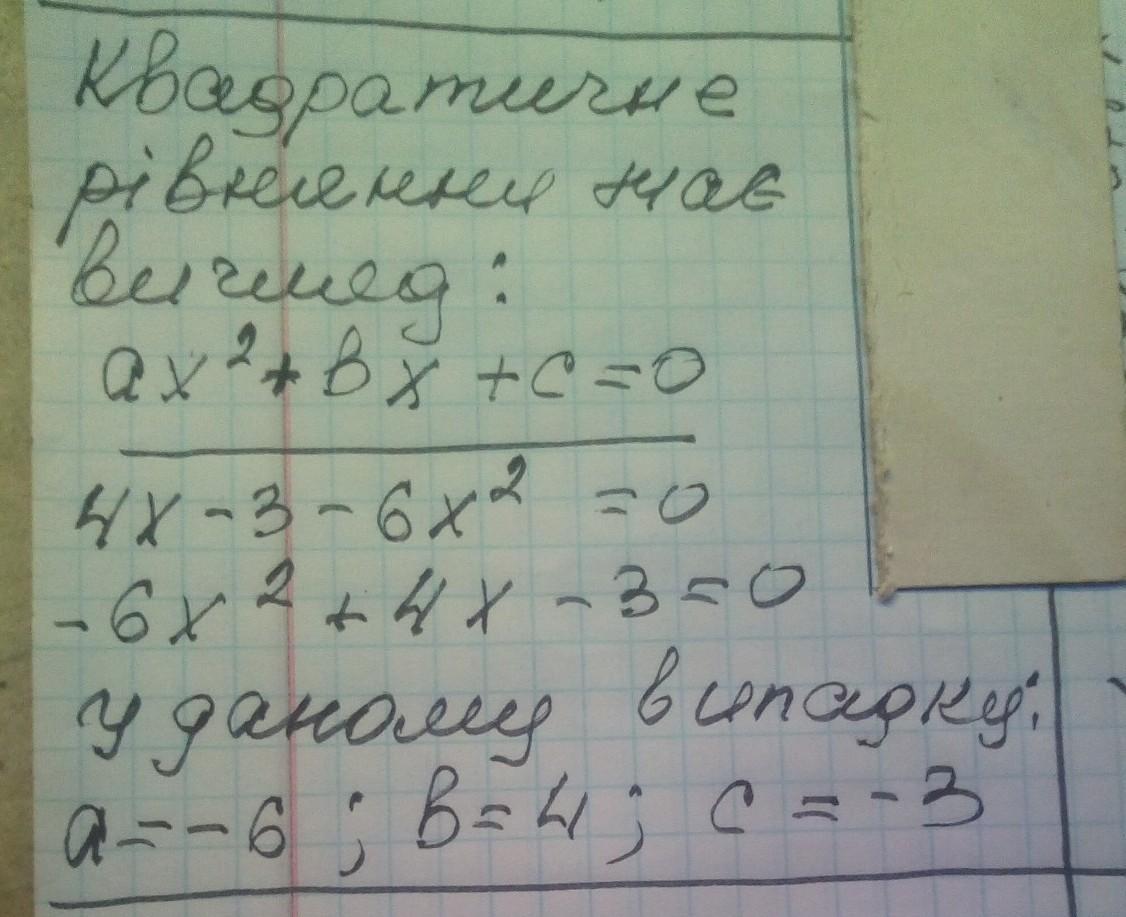 Квадратичне
рівняння має
вигляд:
ax² + bx + c = 0
4x - 3 - 6x² = 0
-6x² + 4x - 3 = 0
у даному випадку:
a = -6; b = 4; c = -3